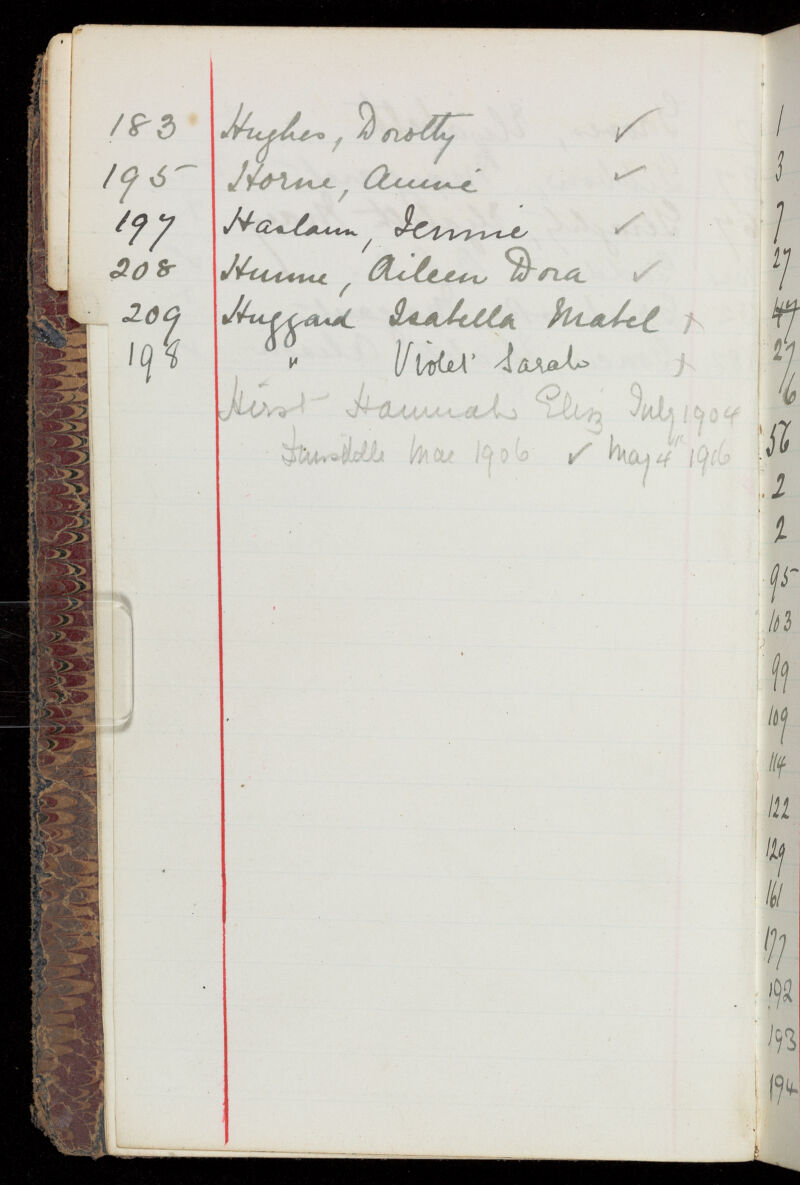 183 Hughes, Dorothy ✓
195 Horne, Annie ✓
197 Haslam, Jennie ✓
208 Hume, Aileen Dora ✓
209 Huggard Isabella Mabel +
198 " Violet Sarah +
Hirst Hannah Eliz July 1904
Mar 1906 ✓ May 4th 1906
1
3
7
27
47
27
16
56
2
2
95
103
99
109
114
122
129
161
177
192
193
194